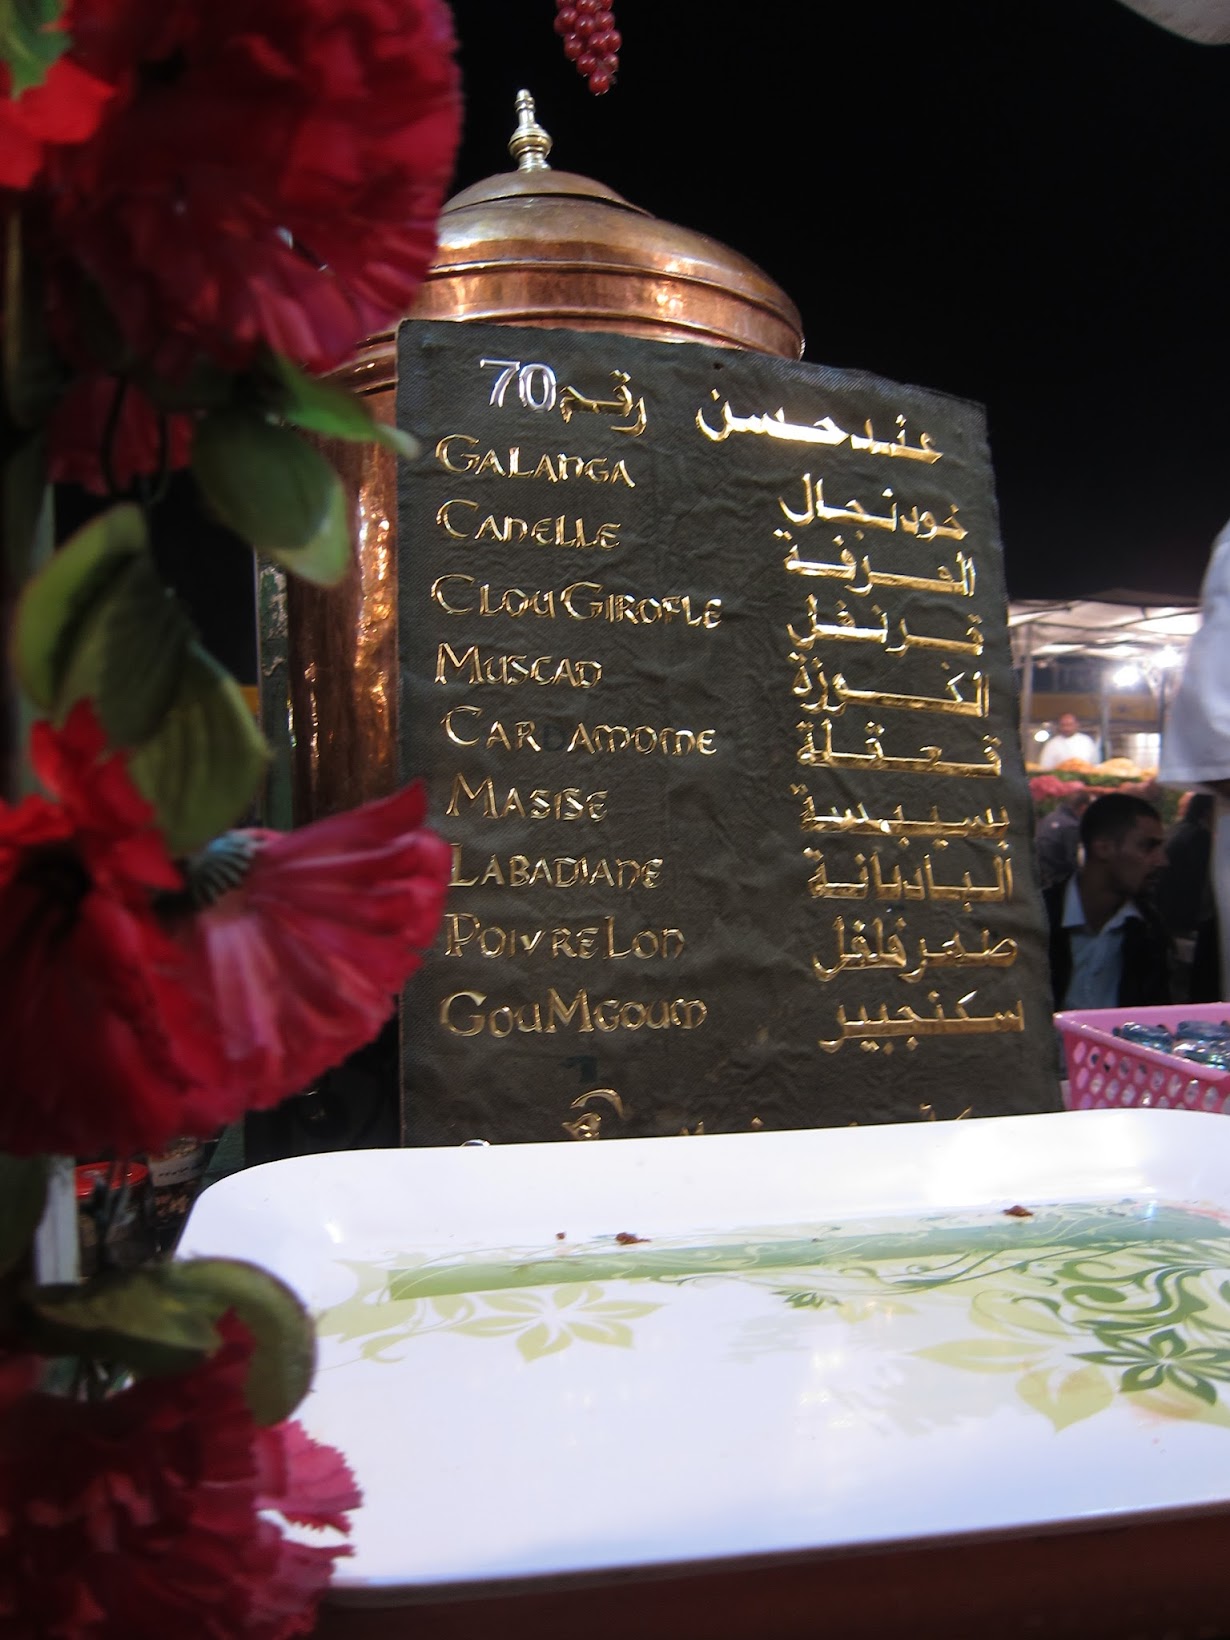 عند حسن رقم 70
GALANGA خودنجال
CANELLE القرفة
CLOU GIROFLE قرنفل
MUSCAD الكوزة
CARDAMOME قعقلة
MASISE بسيبسة
LABADIANE البادبانة
POIVRE LON صحرفلفل
GOUMGOUM سكنجبير